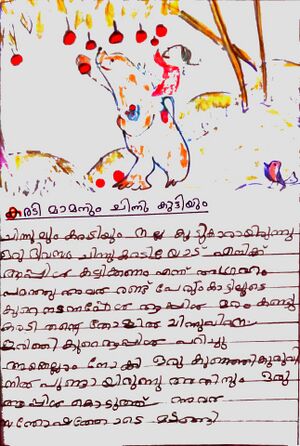 കരടി മാമനും ചിന്നു കുട്ടിയും
ചിന്നുവും കരടിയും നല്ല കൂട്ടുകാരായിരുന്നു
ഒരു ദിവസം ചിന്നു കരടിയോട് എനിക്ക്
ആപ്പിൾ കഴിക്കണം എന്ന് ആഗ്രഹം
പറഞ്ഞു അവർ രണ്ട് പേരും കാട്ടിലൂടെ
കുറെ നടന്നപ്പോൾ ആപ്പിൾ മരം കണ്ടു
കരടി തന്റെ തോളിൽ ചിന്നുവിനെ
ഇരുത്തി കുറെ ആപ്പിൾ പറിച്ചു
അതെല്ലാം നോക്കി ഒരു കുഞ്ഞിക്കുരുവി
നിൽപുണ്ടായിരുന്നു അതിനും ഒരു
ആപ്പിൾ കൊടുത്ത് അവർ
സന്തോഷത്തോടെ മടങ്ങി